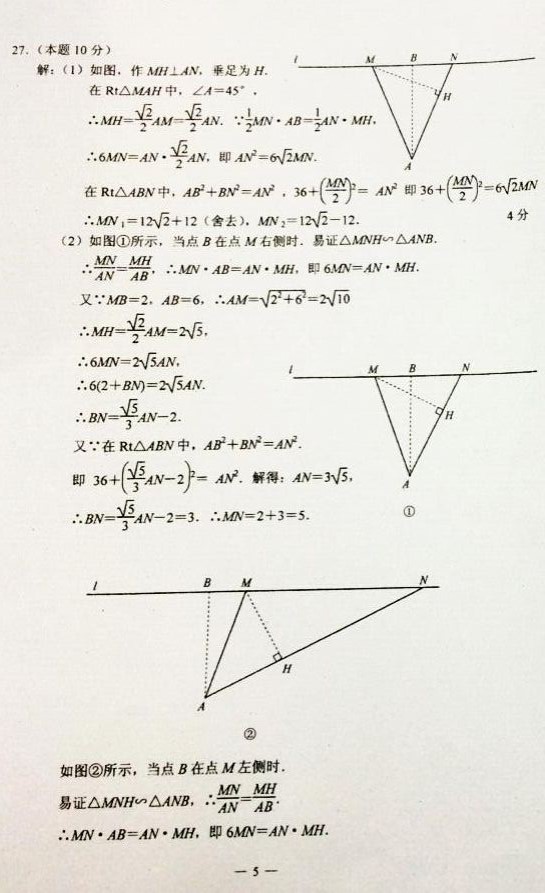 27.（本题 10 分）
解：（1）如图，作 MH⊥AN，垂足为 H.
在 Rt△MAH 中，∠A=45°，
∴MH=$\frac{\sqrt{2}}{2}$AM=$\frac{\sqrt{2}}{2}$AN. ∵$\frac{1}{2}$MN·AB=$\frac{1}{2}$AN·MH，
∴6MN=AN·$\frac{\sqrt{2}}{2}$AN，即 AN²=6√2MN.
l M B N
H
A
在 Rt△ABN 中，AB²+BN²=AN²，36+$\left(\frac{MN}{2}\right)^2$= AN² 即 36+$\left(\frac{MN}{2}\right)^2$=6√2MN
∴MN₁=12√2+12（舍去），MN₂=12√2−12. 4 分
（2）如图①所示，当点 B 在点 M 右侧时．易证△MNH∽△ANB.
∴$\frac{MN}{AN}$=$\frac{MH}{AB}$，∴MN·AB=AN·MH，即 6MN=AN·MH.
又∵MB=2，AB=6，∴AM=$\sqrt{2^2+6^2}$=2√10
∴MH=$\frac{\sqrt{2}}{2}$AM=2√5，
∴6MN=2√5AN，
∴6(2+BN)=2√5AN.
∴BN=$\frac{\sqrt{5}}{3}$AN−2.
又∵在 Rt△ABN 中，AB²+BN²=AN².
即 36+$\left(\frac{\sqrt{5}}{3}AN-2\right)^2$= AN². 解得：AN=3√5，
∴BN=$\frac{\sqrt{5}}{3}$AN−2=3. ∴MN=2+3=5.
l M B N
H
A
①
l B M N
H
A
②
如图②所示，当点 B 在点 M 左侧时．
易证△MNH∽△ANB，∴$\frac{MN}{AN}$=$\frac{MH}{AB}$.
∴MN·AB=AN·MH，即 6MN=AN·MH.
— 5 —